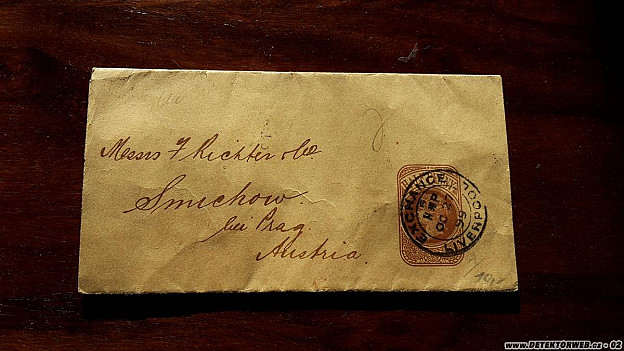 Messrs F Richter & Co.
Smichow.
bei Prag.
Austria.
EXCHANGE
LIVERPOOL
99
www.DETEKTORWEB.cz - 02